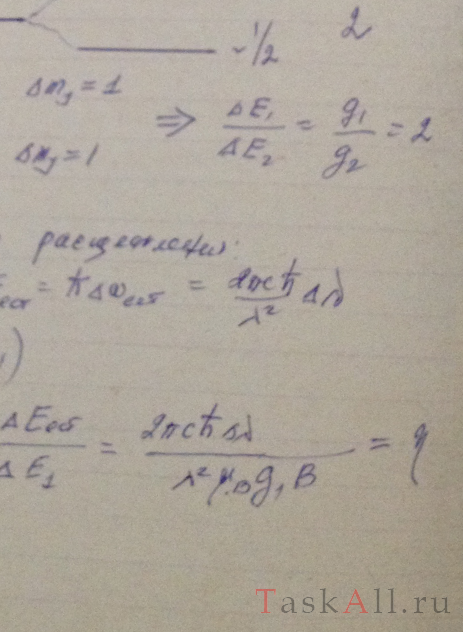 -1/2
2
Δm_J = 1
⇒ ΔE₁/ΔE₂ = g₁/g₂ = 2
Δm_J = 1
расщепления:
ест = ħΔω_ест = 2πcħ/λ² Δλ
)
ΔE_ест/ΔE₁ = 2πcħΔλ/λ²μ_Б g₁B = η
TaskAll.ru